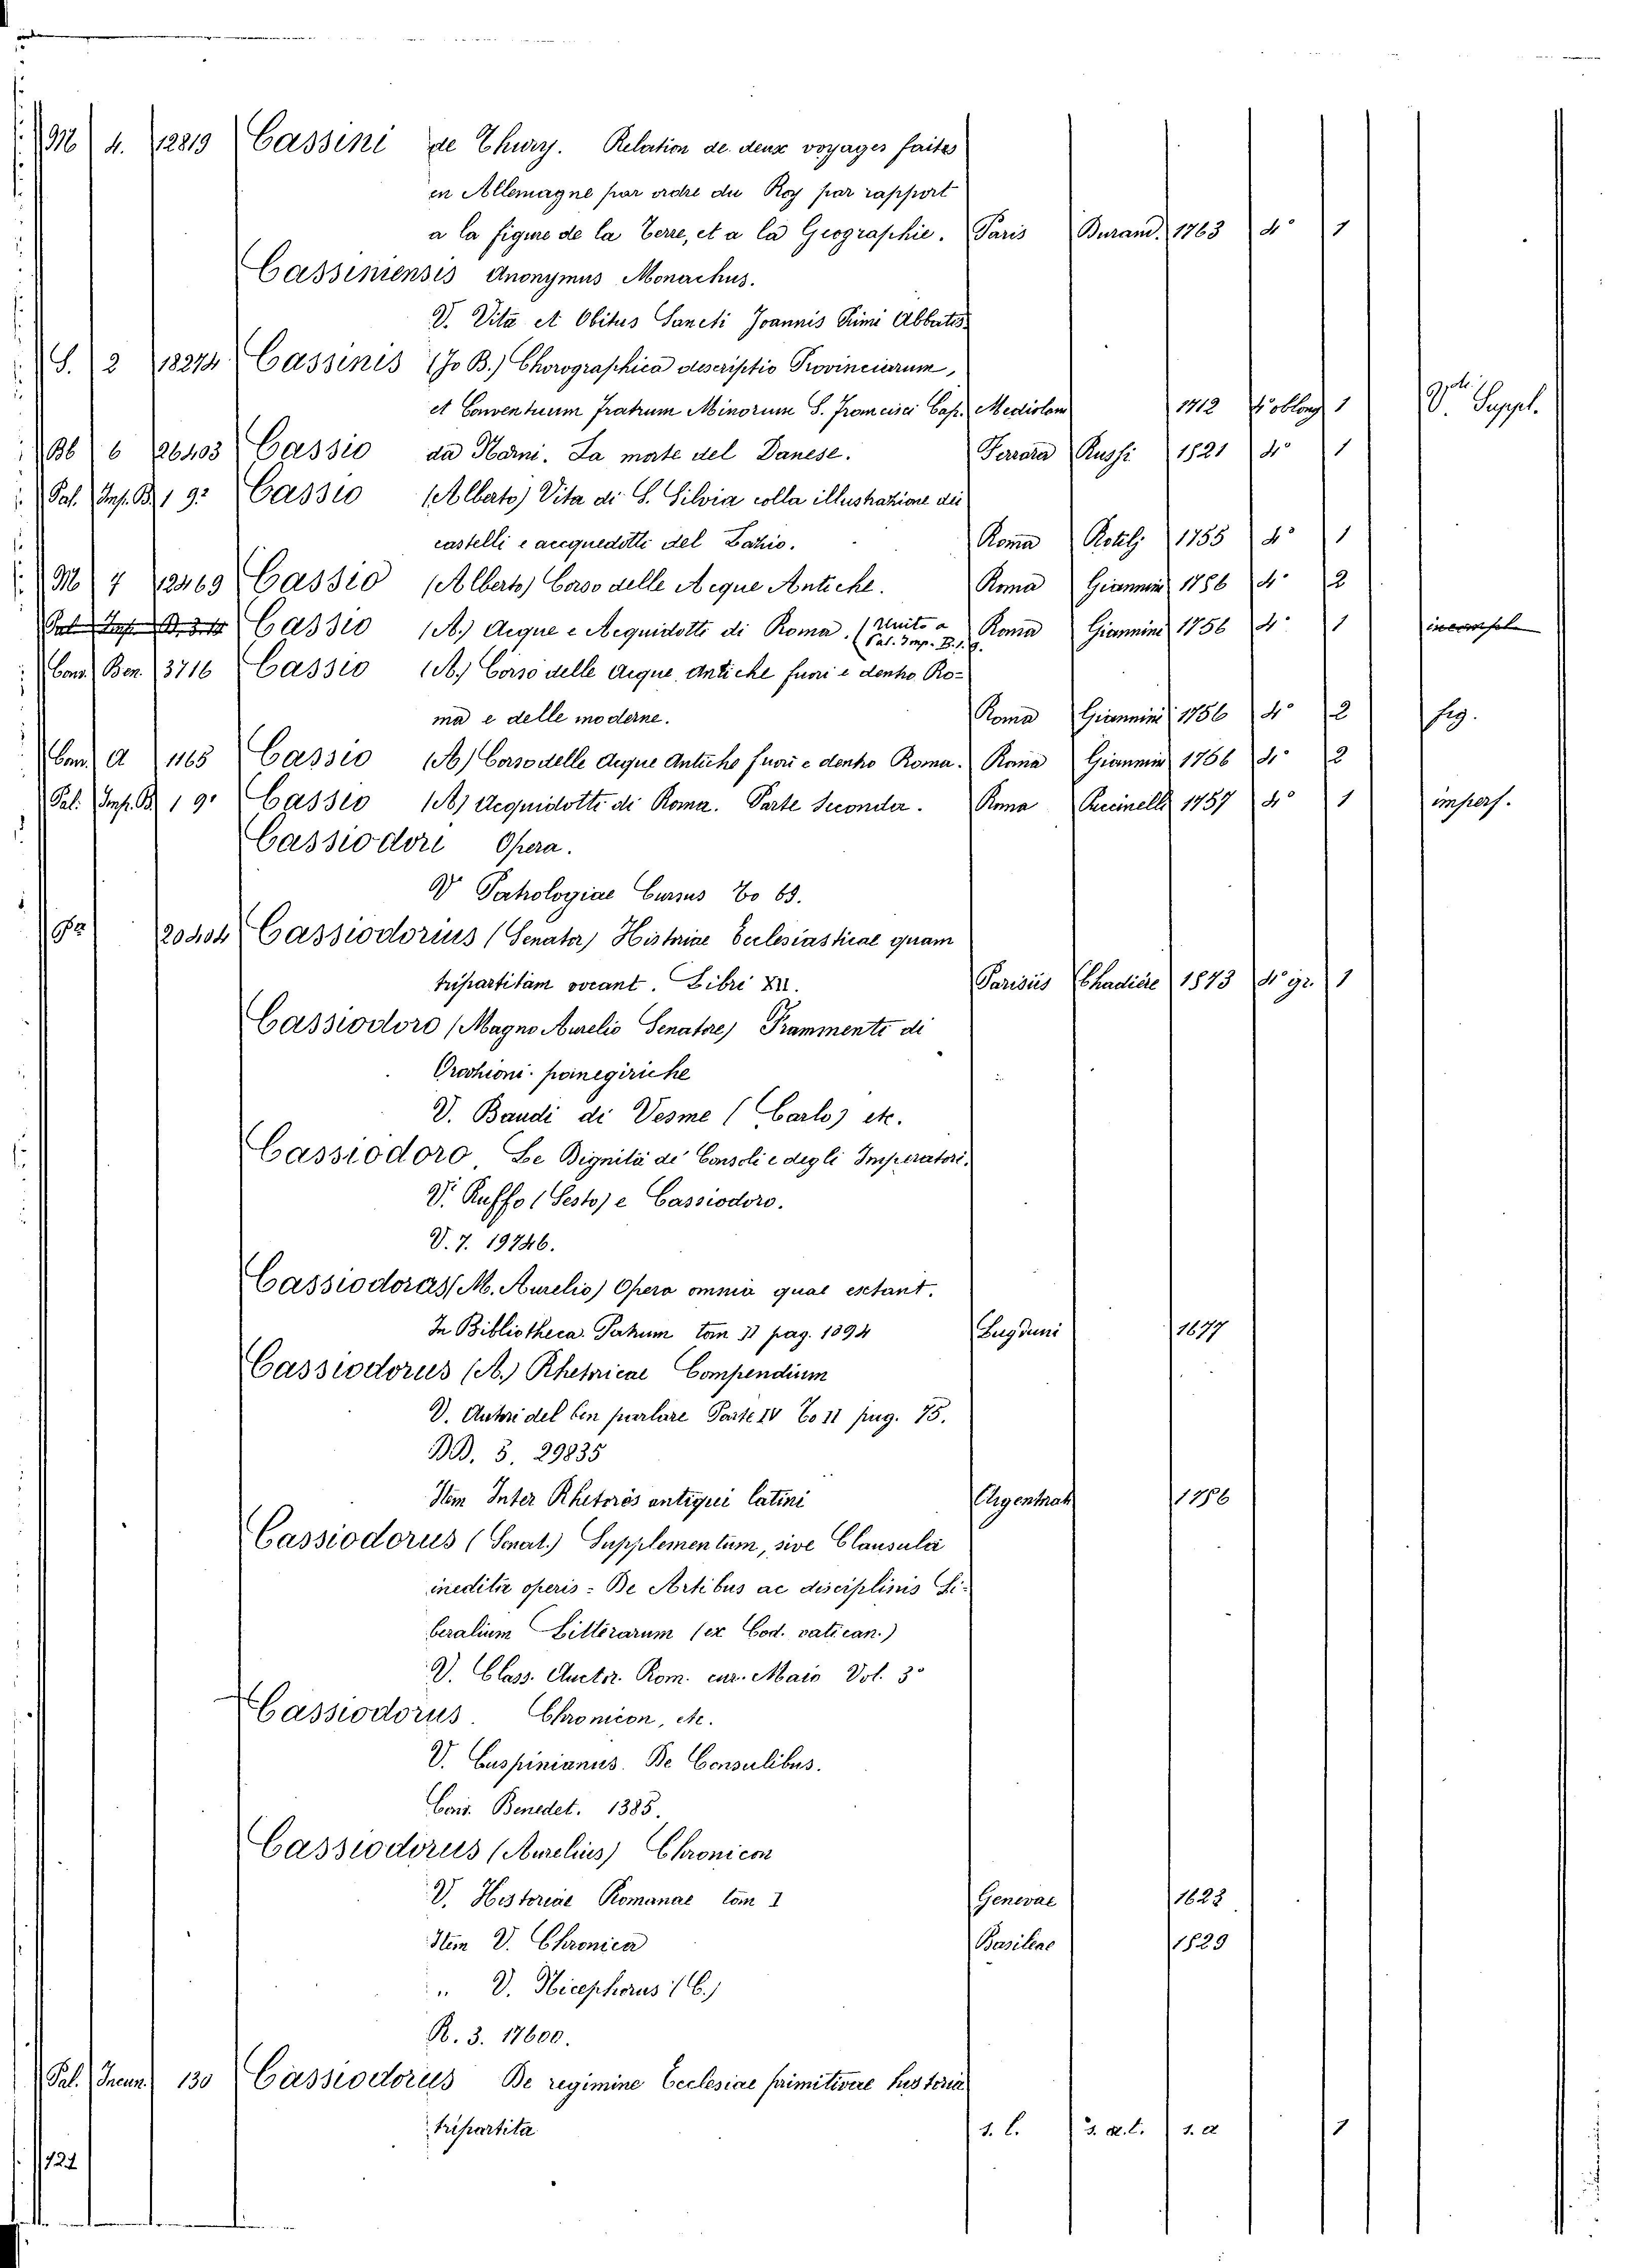 M 4. 12819 Cassini de Thury. Relation de deux voyages faites
en Allemagne par ordre du Roy par rapport
a la figure de la Terre, et a la Geographie. Paris Durand. 1763 4° 1
Cassiniensis Anonymus Monachus.
V. Vita et Obitus Sancti Joannis Primi Abbatis
S. 2 18274 Cassinis (Jo B.) Chorographica descriptio Provinciarum,
et Conventuum Fratrum Minorum S. Francisci Cap. Mediolan 1712 4° oblong 1 V. Suppl.
Bb 6 26403 Cassio da Narni. La morte del Danese. Ferrara Russi 1521 4° 1
Pal. Imp. B. 1 9.2 Cassio (Alberto) Vita di S. Silvia colla illustrazione dei
castelli e accquedotti del Lazio. Roma Rotilj 1755 4° 1
M 7 12469 Cassio (Alberto) Corso delle Acque Antiche. Roma Giannini 1756 4° 2
Pal Imp. B. Cassio (A.) Acque e Acquidotti di Roma. (Unito a Pal. Imp. B. 1. 9. Roma Giannini 1756 4° 1 incompl
Conv. Ben. 3716 Cassio (A.) Corso delle Acque antiche fuori e dentro Ro=
ma e delle moderne. Roma Giannini 1756 4° 2 fig.
Conv. A 1165 Cassio (A) Corso delle Acque Antiche fuori e dentro Roma. Roma Giannini 1756 4° 2
Pal. Imp. B. 1 9. Cassio (A) Acquidotti di Roma. Parte Seconda. Roma Puccinelli 1757 4° 1 imperf.
Cassiodori Opera.
V Patrologiae Cursus To 69.
20404 Cassiodorius (Senator) Historiae Ecclesiasticae quam
tripartitam vocant. Libri XII. Parisiis Chadière 1873 4° gr. 1
Cassiodoro (Magno Aurelio Senatore) Frammenti di
Orazioni panegiriche
V. Baudi di Vesme (Carlo) etc.
Cassiodoro Le Dignità de' Consoli e degli Imperatori,
V. Ruffo (Sesto) e Cassiodoro.
V. 7. 19746.
Cassiodorus (M. Aurelio) Opera omnia quae extant.
In Bibliotheca Patrum tom 11 pag. 1094 Lugduni 1677
Cassiodorus (A.) Rhetoricae Compendium
V. Autori del ben parlare Parte IV To 11 pag. 75.
BB. 5. 29835
Item Inter Rhetorès antiqui latini Argentrat 1756
Cassiodorus (Senat.) Supplementum, sive Clausula
inedita operis: De Artibus ac disciplinis Li=
beralium Litterarum (ex Cod. vatican.)
V. Class. Auctor. Rom. cur. Maio Vol. 3°
Cassiodorus. Chronicon, etc.
V. Cuspinianus. De Consulibus.
Conv. Benedet. 1385.
Cassiodorus (Aurelius) Chronicon
V. Historiae Romanae tom 1 Genevae 1623
Item V. Chronica Basileae 1529
" V. Nicephorus (C.)
R. 3. 17600.
Pal. Incun. 130 Cassiodorus De regimine Ecclesiae primitivae historia
tripartita s. l. s. n. t. s. a 1
121